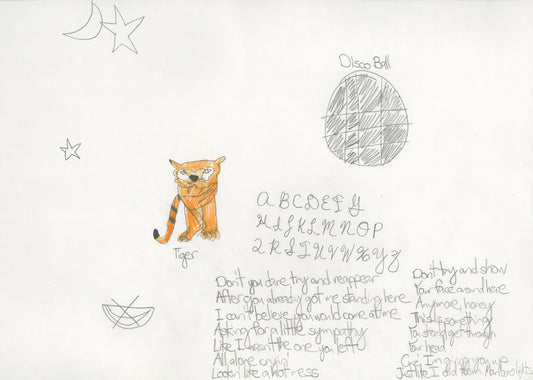 Disco Ball
Tiger
A B C D E F G
H I J K L M N O P
Q R S T U V W X Y Z
Don't you dare try and reappear
After you already got me standing here
I can't believe you would come at me
Asking for a little sympathy
Like I wasn't the one you left
All alone cryin'
Lookin' like a hot mess
Don't try and show
Your face around here
Anymore, honey
This is something
You gotta get through
Your head
Cuz' I'm you
Just like I did them